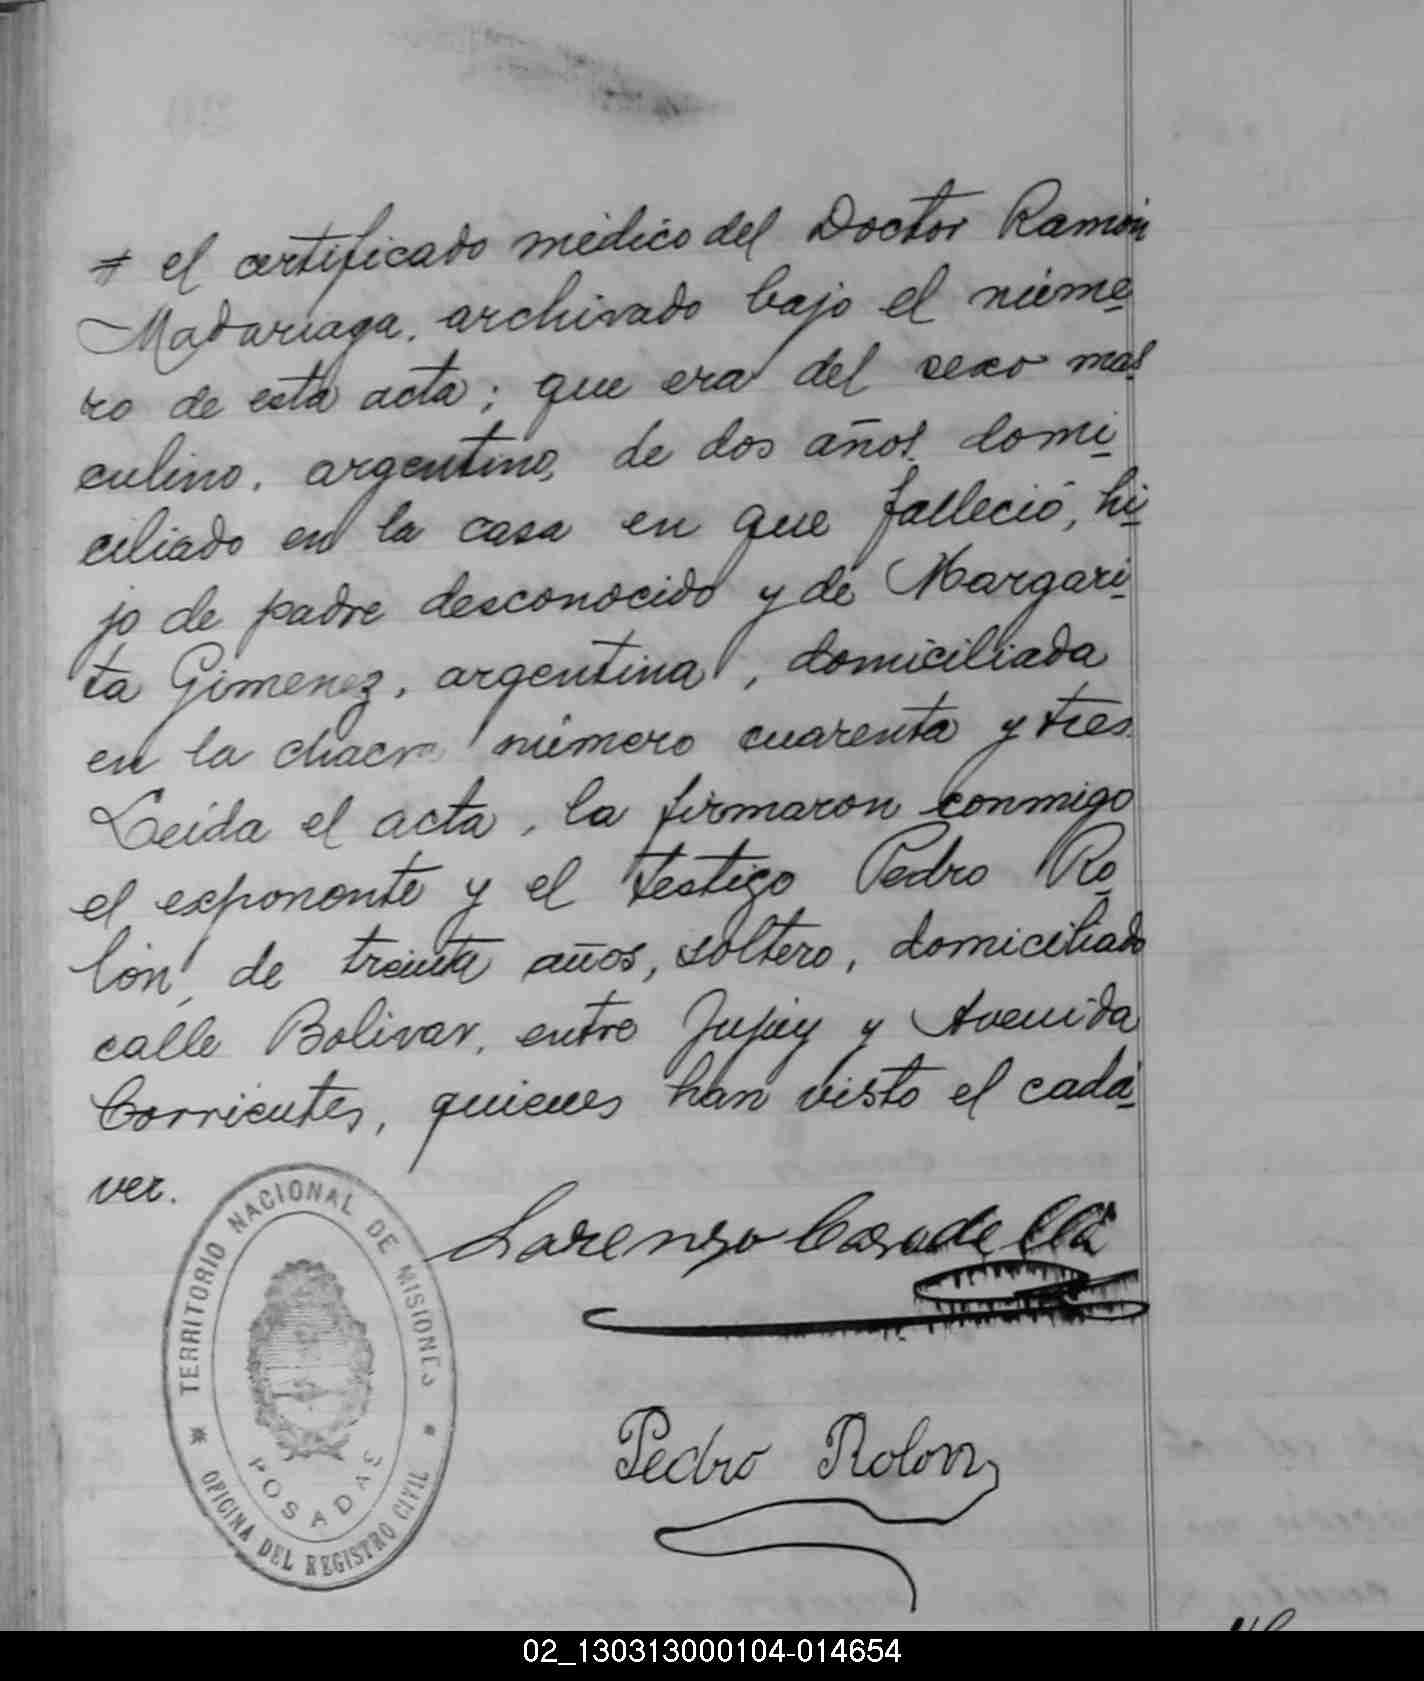 # el certificado médico del Doctor Ramón
Madariaga, archivado bajo el núme-
ro de esta acta; que era del sexo mas
culino, argentino, de dos años, domi-
ciliado en la casa en que falleció, hi-
jo de padre desconocido y de Margari-
ta Gimenez, argentina, domiciliada
en la chacra número cuarenta y tres
Leída el acta, la firmaron conmigo
el exponente y el testigo Pedro Ro-
lón, de treinta años, soltero, domiciliado
calle Bolivar, entre Jujuy y Avenida
Corrientes, quienes han visto el cadá-
ver.
TERRITORIO NACIONAL DE MISIONES
POSADAS
* OFICINA DEL REGISTRO CIVIL *
Lorenzo
Pedro Rolon
02_130313000104-014654